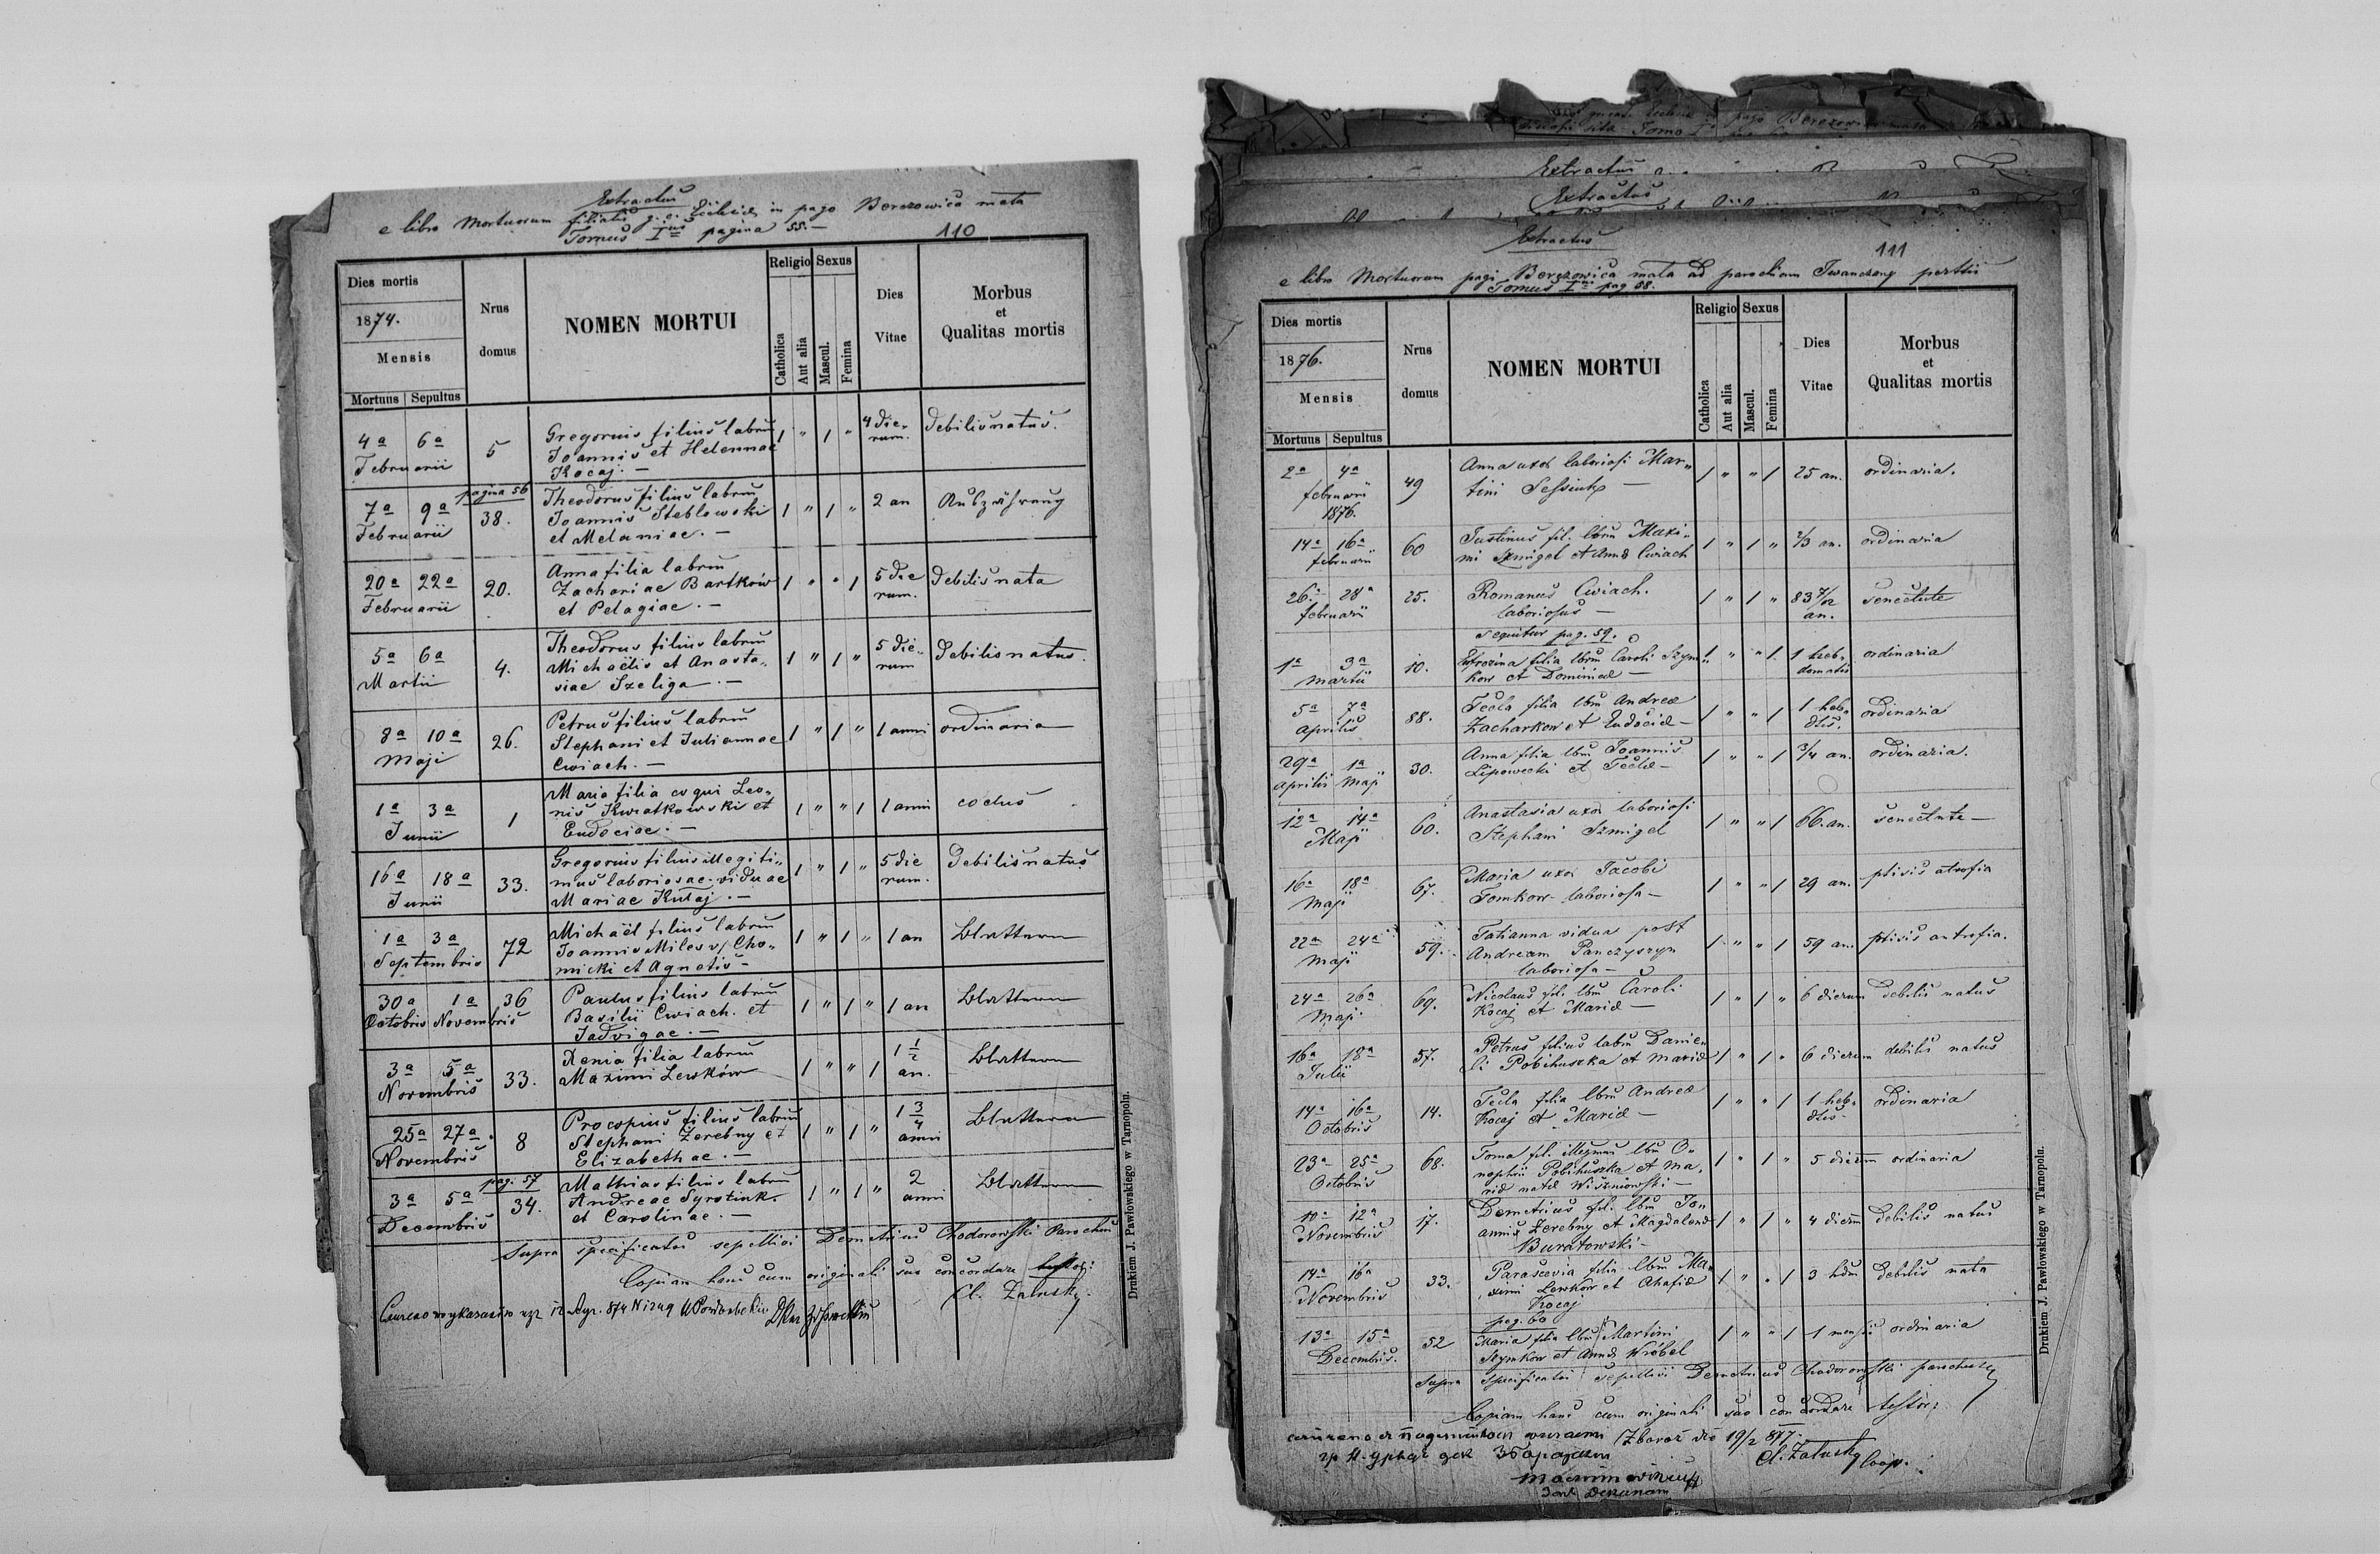 Extractus
e libro Mortuorum filialis g. c. Ecclesiæ in pago Berezowica mała
Tomus Ius pagina 55.—
110
Dies mortis
1874.
Mensis
Mortuus Sepultus
Nrus domus
NOMEN MORTUI
Religio
Catholica
Aut alia
Sexus
Mascul.
Femina
Dies Vitae
Morbus et Qualitas mortis
4a 6a Februarii 5
Gregorius filius labrm
Joannis et Helennae
Kocaj. —
1 " 1 " 4 die-rum. Debilis natus.
pagina 56
7a 9a Februarii 38.
Theodorus filius labrm
Joannis Steblowski
et Melaniae. —
1 " 1 " 2 an
20a 22a Februarii 20.
Anna filia labrm
Zachariae Bartków
et Pelagiae. —
1 " " 1 5 die rum. Debilis nata
5a 6a Martii 4.
Theodorus filius labrm
Michaëlis et Anasta-
siae Szeliga. —
1 " 1 " 5 die-rum Debilis natus.
8a 10a Maji 26.
Petrus filius labrm
Stephani et Juliannae
Cwiach. —
1 " 1 " 1 anni ordinaria
1a 3a Junii 1
Maria filia coqui Leo-
nis Kwiatkowski et
Eudociae. —
1 " " 1 1 anni coctus
16a 18a Junii 33.
Gregorius filius illegiti-
mus laboriosae viduae
Mariae Kutaj. —
1 " 1 " 5 die rum. Debilis natus
1a 3a Septembris 72
Michaël filius labrm
Joannis Milesv/Cho-
micki et Agnetis —
1 " 1 " 1 an Blattern
30a 1a Octobris Novembris 36
Paulus filius labrm
Basilii Cwiach. et
Jadvigae. —
1 " 1 " 1 an Blattern
3a 5a Novembris 33.
Xenia filia labrm
Maximi Lewków
1 " " 1 1 1/2 an. Blattern
25a 27a Novembris 8
Procopius filius labrm
Stephani Zerebny et
Elizabethae. —
1 " 1 " 1 3/4 anni Blattern
pag. 57
3a 5a Decembris 34.
Mathias filius labrm
Andreae Syrotiuk.
et Carolinae. —
1 " 1 " 2 anni Blattern
Supra specificatos sepellivi Demetrius Chodorowski Parochus
Copiam hanc cum originali suo concordare testor:
Cl. Załuski
Drukiem J. Pawłowskiego w Tarnopolu.
Extractus
111
e libro Mortuorum pagi Berezowica mała ad parochiam Iwanczany
Tomus I pag 58.
Dies mortis
1876.
Mensis
Mortuus Sepultus
Nrus domus
NOMEN MORTUI
Religio
Catholica
Aut alia
Sexus
Mascul.
Femina
Dies Vitae
Morbus et Qualitas mortis
2a 4a februarii 1876. 49
Anna uxor laboriosi Mar-
tini
1 " " 1 25 an. ordinaria.
14a 16a februarii 60
Justinus fil. lbrm Maxi-
mi Szmigel et Annæ Cwiach
1 " 1 " 2/3 an. ordinaria
26a 28a februarii 25.
Romanus Cwiach.
laboriosus —
1 " 1 " 83 7/12 an. senectute
sequitur pag. 59.
1a 3a martii 10.
Efrozina filia lbrm Caroli Szym-
kow et —
1 " " 1 1 heb-domatis ordinaria
5a 7a aprilis 88.
Tecla filia lbrm Andreæ
Zacharkow et Eudociæ —
1 " " 1 1 heb-dtis. ordinaria
29a 1a aprilis Maji 30.
Anna filia lbrm Joannis
Lipowecki et Teclæ —
1 " " 1 3/4 an. ordinaria.
12a 14a Maji 60.
Anastasia uxor laboriosi
Stephani Szmigel
1 " " 1 66. an. senectute —
16a 18a Maji 67.
Maria uxor Jacobi
Tomkow laboriosa —
1 " " 1 29 an. ptisis atrofia
22a 24a Maji 59.
Tatianna vidua post
Andream Panczyszyn
laboriosa —
1 " " 1 59 an. ptisis antrofia.
24a 26a Maji. 69.
Nicolaus fil. lbm Caroli
Kocaj et Mariæ —
1 " 1 " 6 dierum debilis natus
16a 18a Julii 57.
Petrus filius labrm Danie-
li Pobihuszka et Mariæ
1 " 1 " 6 dierum debilis natus
14a 16a Octobris 14.
Tecla filia lbrm Andreæ
Kocaj et Mariæ —
1 " " 1 1 heb-dtis — ordinaria
23a 25a Octobris 68.
Toma fil. lbm O-
nophrii Pobihuszka et Ma-
riæ natæ Wiszniowski —
1 " 1 " 5 dierum ordinaria
10a 12a Novembris 17.
Demetrius fil. lbm Jo-
annis Zerebny et Magdalenæ
Buratowski —
1 " 1 " 4 dierm debilis natus
14a 16a Novembris 33.
Parascevia filia lbrm Ma-
ximi Lewkow et
Kocaj
1 " " 1 3 hdm debilis nata
pag. 60
13a 15a Decembris. 52
Maria filia lbrm Martini
Szymkow et Annæ Wróbel
1 " " 1 1 mensis ordinaria
Supra specificatos sepellivi Demetrius Chodorowski parochus
Copiam hanc cum originali suo concordare testor:
Zbaraż 19/2 877.
Cl. Załuski Coop.
Drukiem J. Pawłowskiego w Tarnopolu.